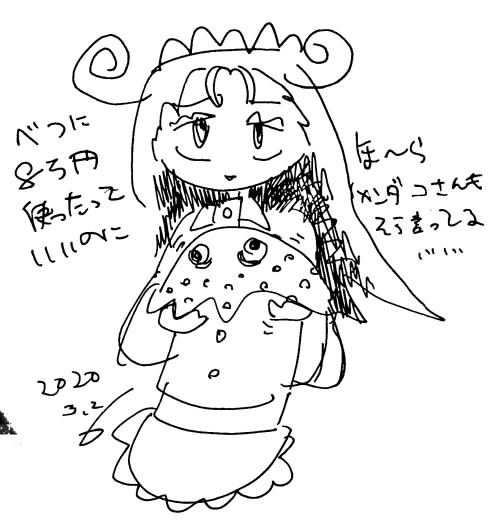 べつに
8万円
使ったって
いいのに
ほ〜ら
メンダコさんも
そう言ってる
2020
3.2